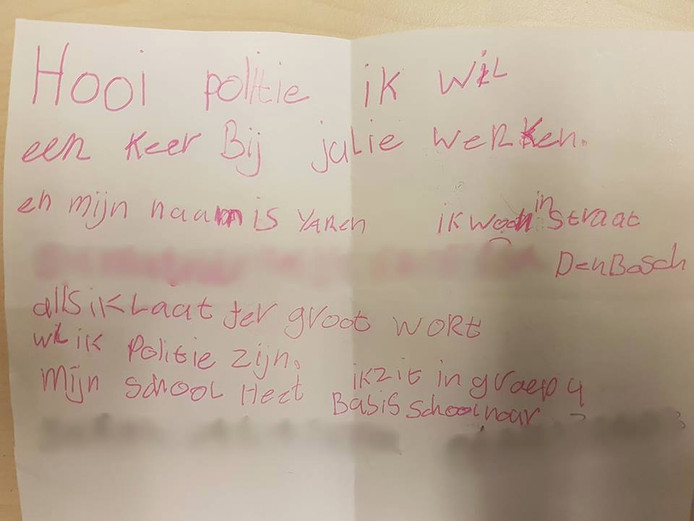 Hooi politie ik wil
een keer Bij julie werken.
en mijn naam is YAREN ik woon in straat
DenBosch
alls ik Laat ter groot wort
wil ik politie zijn.
Mijn school Heet ik zit in groep 4
Basis school naar